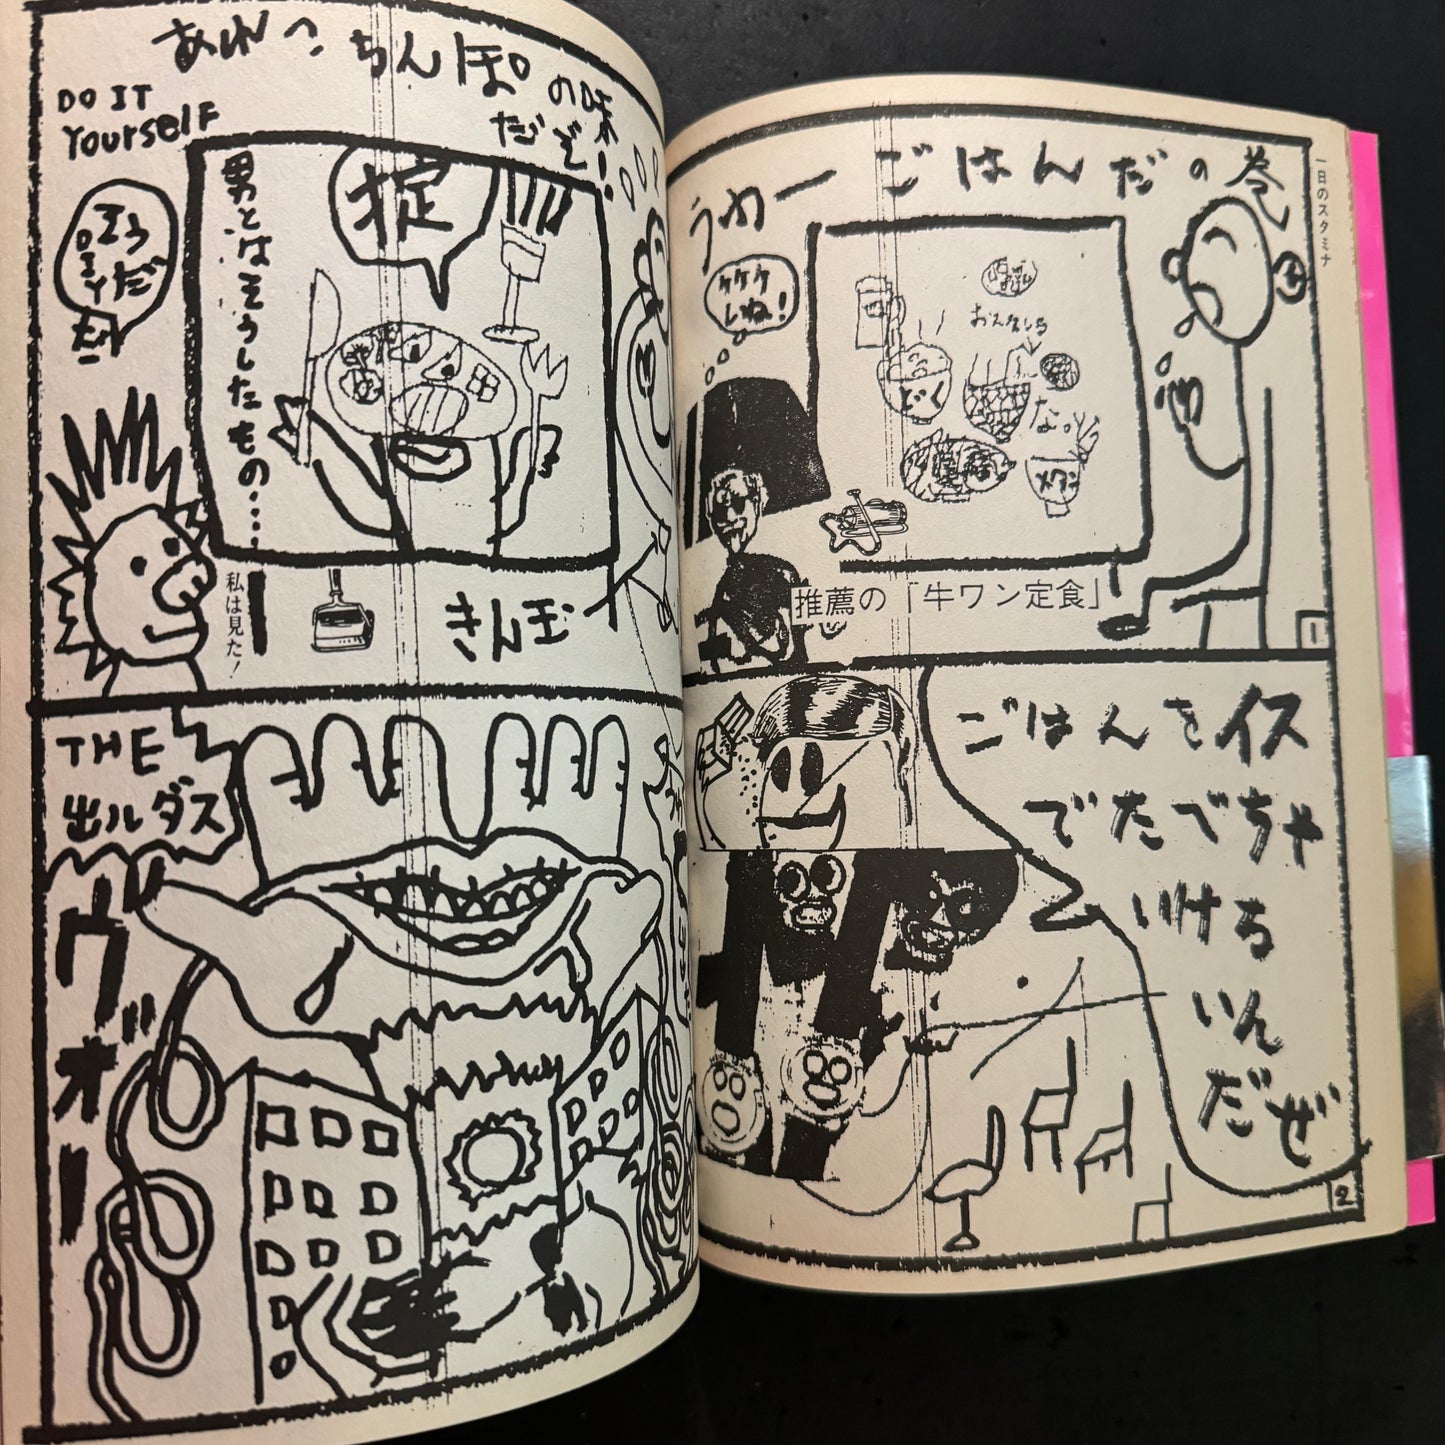 一日のスタミナ
ごはんだの巻
うわー
ケケケ
しね!
どく
な。
メタン
推薦の「牛ワン定食」
1
ごはんをイス
でたべちゃ
いけち
いんだぜ
2
あれっ、ちんぽの味
だぞ!
DO IT
YourselF
掟
男とはそうした もの・・・
私は見た!
きん玉
THE
出ルダス
ヴォー